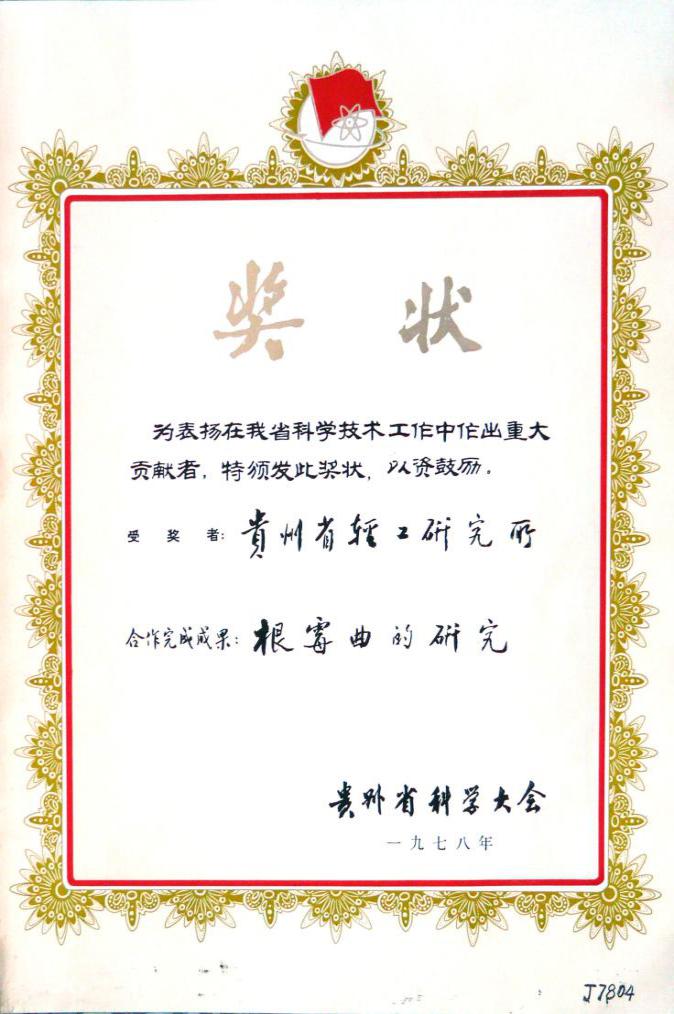 奖 状
为表扬在我省科学技术工作中作出重大
贡献者，特颁发此奖状，以资鼓励。
受奖者：貴州省輕工研究所
合作完成成果：根霉曲的研究
贵州省科学大会
一九七八年
J7804